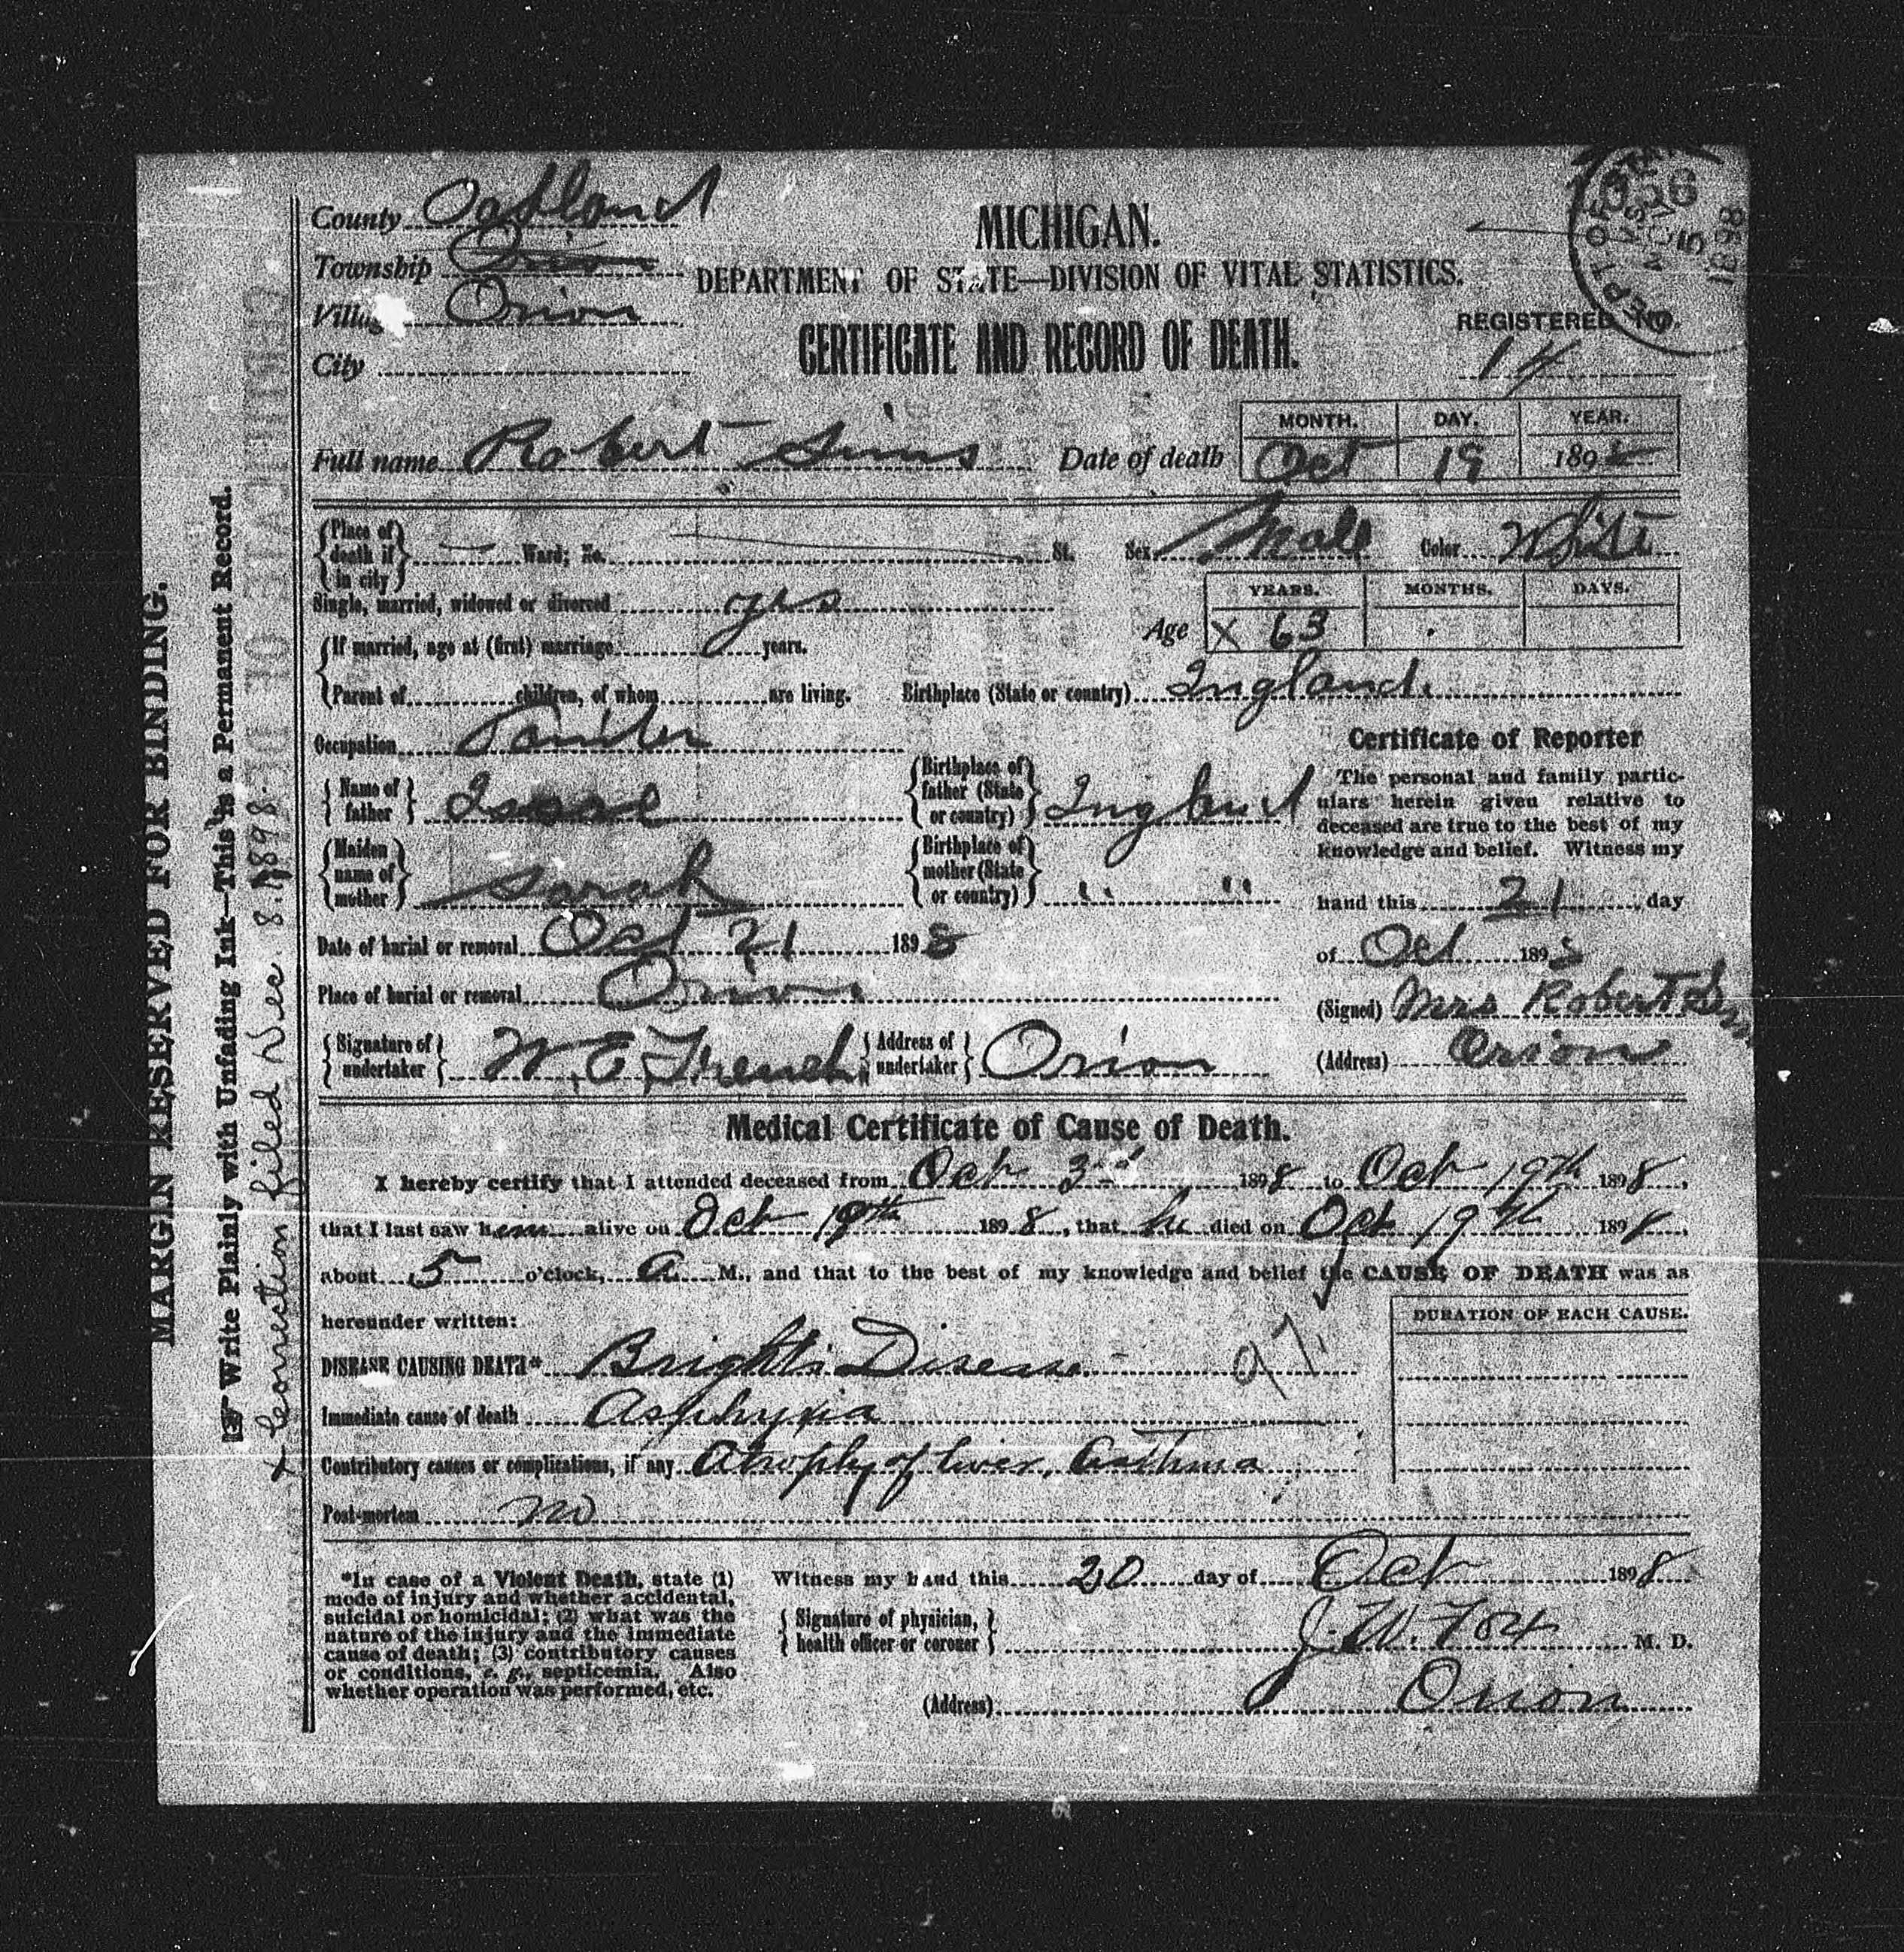 County Oakland
Township Orion
Village Orion
City
MICHIGAN.
DEPARTMENT OF STATE—DIVISION OF VITAL STATISTICS.
CERTIFICATE AND RECORD OF DEATH.
REGISTERED NO.
14
DEPT OF STATE
NOV
5
1898
Full name Robert Sims Date of death
MONTH. DAY. YEAR.
Oct 19 1898
{Place of death if in city} Ward; No. St. Sex Male Color White
Single, married, widowed or divorced yes
Age
YEARS. MONTHS. DAYS.
X 63
{If married, age at (first) marriage years.
Parent of children, of whom are living. Birthplace (State or country) Ingland.
Occupation
{Name of father}
{Birthplace of father (State or country)} Ingland
{Maiden name of mother} Sarah
{Birthplace of mother (State or country)} " "
Date of burial or removal Oct 21 1898
Place of burial or removal Orion
{Signature of undertaker} W. E. French {Address of undertaker} Orion
Certificate of Reporter
The personal and family partic-
ulars herein given relative to
deceased are true to the best of my
knowledge and belief. Witness my
hand this 21 day
of Oct 1898
(Signed) Mrs Robert Sims
(Address) Orion
Medical Certificate of Cause of Death.
I hereby certify that I attended deceased from Oct 3rd 1898 to Oct 19th 1898,
that I last saw him alive on Oct 19th 1898, that he died on Oct 19th 1898,
about 5 o'clock, a M., and that to the best of my knowledge and belief the CAUSE OF DEATH was as
hereunder written:
DURATION OF EACH CAUSE.
DISEASE CAUSING DEATH* Brights Disease.
97
Immediate cause of death Asphyxia
Contributory causes or complications, if any Atrophy of liver, Asthma
Post-mortem no
*In case of a Violent Death, state (1)
mode of injury and whether accidental,
suicidal or homicidal; (2) what was the
nature of the injury and the immediate
cause of death; (3) contributory causes
or conditions, e. g., septicemia. Also
whether operation was performed, etc.
Witness my hand this 20 day of Oct 1898
{Signature of physician, health officer or coroner} J. W. Fox M. D.
(Address) Orion
MARGIN RESERVED FOR BINDING.
Write Plainly with Unfading Ink—This is a Permanent Record.
x Correction filed Dec. 8. 1898